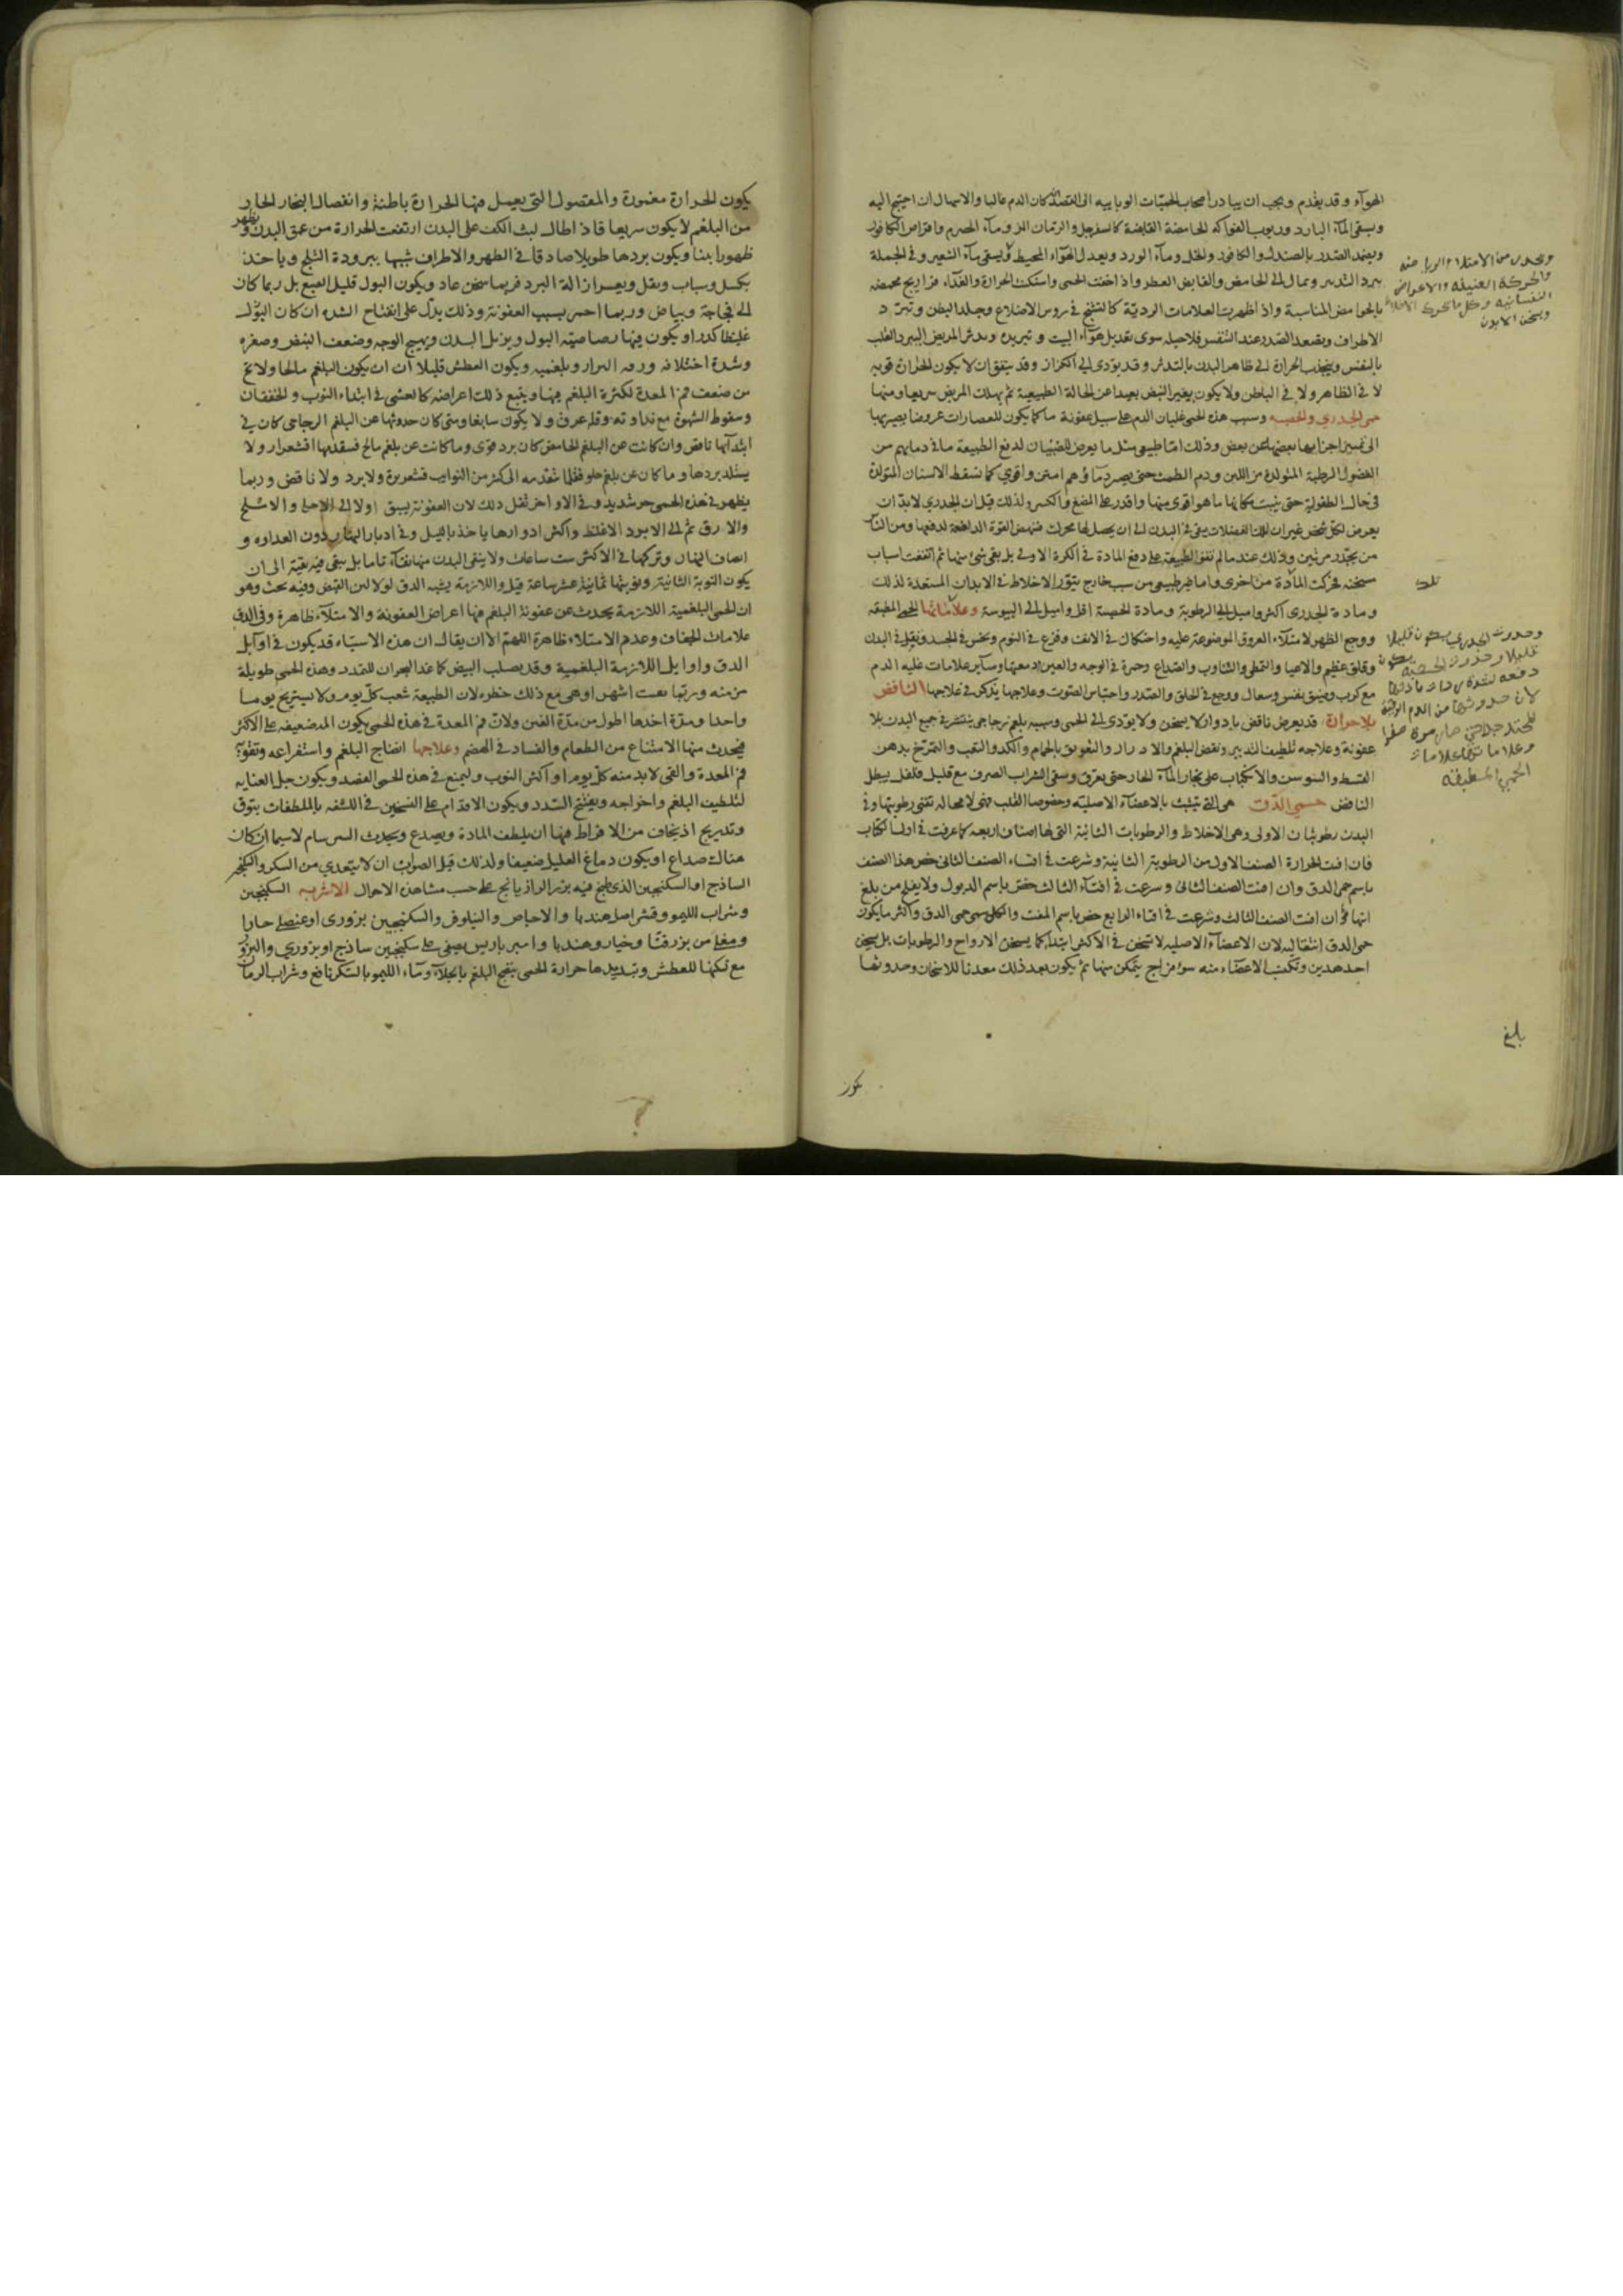 الهوآء وقد يقدم ويجب ان يبادر اصحاب الحميات الوبايية الى الفصد ان كان الدم غالبا والاسهال ان احتيج اليه
ويسقى المآء البارد وربوب الفواكه الحامضة القابضة كالسفرجل والرمان المز ومآء الحصرم واقراص الكافور
ويضمد الصدر بالصندل والكافور والخل ومآء الورد ويعدل الهوآء المحيط ويسقى مآء الشعير وفي الجملة
يبرد التدبير ويمال الى الحامض والقابض العطر واذا خفت الحمى واسكنت الحرارة والغذآء فراريج محمضه
بالحوامض المناسبة واذا ظهرت العلامات الردية كالتشنج في روس الاضلاع وجلد البطن وتبرد
الاطراف وتصعد الصدر عند التنفس فلا حيلة سوى تعديل هوآء البيت وتبريده ويدثر المريض ليبرد القلب
بالنفس وينجذب الحرارة الى ظاهر البدن بالتدثر وقد يودى الى الكزاز وقد يتفق ان لا يكون الحرارة قوية
لا في الظاهر ولا في الباطن ولا يكون يغير النبض بعيدا عن الحالة الطبيعية ثم يهلك المريض سريعا ومنها
حمى الجدري والحصبه وسبب هذه الحمى غليان الدم على سبيل عفونة ما كما يكون للعصارات عروضا يصيربها
الى تمييز اجزايها بعضها عن بعض وذلك اما طبيعى مثل ما يعرض للصبيان لدفع الطبيعة ما في دمايهم من
الفضول الرطبة المتولدة من اللبن ودم الطمث حتى يصير دماؤهم امتن واقوي كما تسقط الاسنان المتولدة
في حال الطفولية حتى ينبت مكانها ما هو اقوى منها واقدر على المضغ والكسر ولذلك قيل ان الجدري لابد ان
يعرض لكل شخص غير ان تلك الفضلات يبقى في البدن الى ان يصل لها محرك فينهض القوة الدافعة لدفعها ومن الناس
من يجدر مرتين وذلك عندما لم تقو الطبيعة على دفع المادة في الكرة الاولى بل بقى شئ منها ثم اتفقت اسباب
مسخنه فحركت المادة مرة اخرى واما غير طبيعي من سبب خارج يثور الاخلاط في الابدان المستعدة لذلك
ومادة الجدرى اكثر واميل الى الرطوبة ومادة الحصبة اقل واميل الى اليبوسة وعلاماتها الحمى المطبقه
ووجع الظهر لامتلآء العروق الموضوعة عليه واحتكاك في الانف وفزع في النوم ونخس في الجسد وثقل في البدن
وقلق عظيم والاعيا والتمطي والتثاوب والصداع وحمرة في الوجه والعين ودمعها وساير علامات غلبة الدم
مع كرب وضيق نفس وسعال ووجع في الحلق والصدر واحتباس الصوت وعلاجها يذكر في علاجها النافض
بلا حرارة قد يعرض نافض بادوار لا يسخن ولا يودى الى الحمى وسببه بلغم زجاجي ينتشر في جميع البدن بلا
عفونة وعلاجه تلطيف التدبير ونفض البلغم والادرار والتعريق بالحمام والكد والتعب والتمريخ بدهن
القسط والسوسن والانكباب على بخار المآء الحار حتى يعرق وسقى الشراب الصرف مع قليل فلفل يبطل
النافض حمى الدق هى التى تتشبث بالاعضآء الاصلية وخصوصا القلب فهى لا محالة تفنى رطوبتها وفي
البدن رطوبتان الاولى وهى الاخلاط والرطوبات الثانية التى لها اصناف اربعة كما عرفت في اول الكتاب
فان افنت الحرارة الصنف الاول من الرطوبة الثانية وشرعت في افناء الصنف الثاني خص هذا الصنف
باسم حمى الدق وان افنت الصنف الثاني وشرعت في افنآء الثالث خص باسم الذبول ولا يفلح من بلغ
انتهاؤه وان افنت الصنف الثالث وشرعت في افناء الرابع خص باسم المفتت والكل سمى حمى الدق واكثر ما يكون
حمى الدق انتقالية لان الاعضآء الاصلية لا تسخن في الاكثر ابتدآء كما يسخن الارواح والرطوبات بل يسخن
احد هذين وتكتسب الاعضآء منه سوء مزاج يتمكن منها ثم يكون بعد ذلك معدنا للاسخان وحدوثها
والحركة العنيفة والاعراض
النفسانية وكل ما يحرك الاخلاط
ويسخن الابدن
وحدوث الجدري يكون قليلا
قليلا وحدوث الحصبة يكون
دفعة
لان حدوثها من الدم الرقيق
وعلاماتها علامات
الحمى المطبقة
بلغ
يكون
يكون الحرارة مغمورة والمفصول التى يعمل فيها الحرارة باطنة وانفصال البخار الحار
من البلغم لا يكون سريعا فاذا اطال لبث الكف على البدن ارتفعت الحرارة من عمق البدن وظهر
ظهورا بينا ويكون بردها طويلا صادقا في الظهر والاطراف شبيها ببرودة الثلج وياخذ
بكسل وسبات وثقل ويعسر ازالة البرد فربما سخن عاد ويكون البول قليل الصبغ بل ربما كان
الى فجاجة وبياض وربما احمر بسبب العفونة وذلك يدل على انفتاح السدد ان كان البول
غليظا كدرا ويكون فيها رصاصية البول وبهزل البدن وتهيج الوجه وضعف النبض وصغره
وشدة اختلافه ورقة البراز وبلغميه ويكون العطش قليلا الا ان يكون البلغم مالحا ولا تخ
من ضعف فم المعدة لكثرة البلغم فيها ويتبع ذلك اعراضه كالغشى في ابتداء النوب والخفقان
وسقوط الشهوة مع نداوته وقلة عرق ولا يكون سابغا ومتى كان حدوثها عن البلغم الزجاجي كان في
ابتدآئها نافض وان كانت عن البلغم الحامض كان برد قوى وما كانت عن بلغم مالح فيتقدمها اقشعرار ولا
يشتد بردها وما كان عن بلغم حلو فقلما تتقدمه الى كثير من النوايب قشعريرة ولا برد ولا نافض وربما
يظهر في هذه الحمى حر شديد وفي الاواخر ثقل ذلك لان العفونة يسبق اولا الى الاحلى والاملح
والارق ثم الى الابرد الاغلظ واكثر ادوارها ياخذ بالليل وفي ادبار النهار دون الغداوه و
انصاف النهار وتركها في الاكثر ست ساعات ولا ينقى البدن منها نقآء تاما بل يبقى فيه بقية الى ان
يكون النوبة الثانية ونوبتها ثمانية عشر ساعة قيل واللازمة يشبه الدق لولا لين النبض وفيه بحث وهو
ان الحمى البلغمية اللازمة يحدث عن عفونة البلغم فيها اعراض العفونة والامتلآء ظاهرة وفي الدق
علامات الجفاف وعدم الامتلاء ظاهرة اللهم الا ان يقال ان هذه الاشياء قد يكون في اوايل
الدق واوايل اللازمة البلغمية وقد يصلب النبض كما عند البحران للتمدد وهذه الحمى طويلة
مزمنه وربما بقيت اشهرا وهى مع ذلك خطره لان الطبيعة تتعب كل يوم ولا تستريح يوما
واحدا ومدة اخذها اطول من مدة الغب ولان فم المعدة في هذه الحمى يكون ضعيفه على الاكثر
فيحدث منها الامتناع من الطعام والفساد في الهضم وعلاجها انضاج البلغم واستفراغه وتقوية
فم المعدة والقى لابد منه كل يوم او اكثر النوب وليمنع في هذه الحمى الفصد ويكون جل العناية
لتلطيف البلغم واخراجه ويفتح السدد ويكون الاقدام على التسخين في اللثغه بالملطفات بتوق
وتدريج اذ يخاف من الافراط فيها ان يلطف المادة ويصدع ويحدث السرسام لاسيما ان كان
هناك صداع او يكون دماغ العليل ضعيفا ولذلك قيل الصواب ان لا يتعدى من السكر والسكنجبين
الساذج او السكنجبين الذى طبخ فيه بزر الرازيانج على حسب مشاهدة الاحوال الاشربه السكنجبين
وشراب الليمو وقشر اصل هندبا والاجاص والنيلوفر والسكنجبين بزورى او عنصلي حارا
ومغلى من بزر قثا وخيار وهندبا وامير باريس يصفى على سكنجبين ساذج او بزوري والبزور
مع تسكينها للعطش وتبديدها حرارة الحمى ينضج البلغم بالجلآء ومآء الليمو بالسكر نافع وشراب الرمان